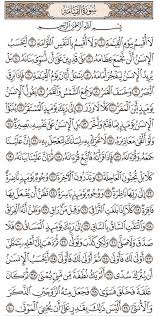 سُورَةُ الْقِيَامَةِ
بِسْمِ اللَّهِ الرَّحْمَٰنِ الرَّحِيمِ
لَا أُقْسِمُ بِيَوْمِ الْقِيَامَةِ ١ وَلَا أُقْسِمُ بِالنَّفْسِ اللَّوَّامَةِ ٢ أَيَحْسَبُ
الْإِنسَانُ أَلَّن نَّجْمَعَ عِظَامَهُ ٣ بَلَىٰ قَادِرِينَ عَلَىٰ أَن نُّسَوِّيَ بَنَانَهُ ٤ بَلْ يُرِيدُ
الْإِنسَانُ لِيَفْجُرَ أَمَامَهُ ٥ يَسْأَلُ أَيَّانَ يَوْمُ الْقِيَامَةِ ٦ فَإِذَا بَرِقَ
الْبَصَرُ ٧ وَخَسَفَ الْقَمَرُ ٨ وَجُمِعَ الشَّمْسُ وَالْقَمَرُ ٩ يَقُولُ
الْإِنسَانُ يَوْمَئِذٍ أَيْنَ الْمَفَرُّ ١٠ كَلَّا لَا وَزَرَ ١١ إِلَىٰ رَبِّكَ يَوْمَئِذٍ الْمُسْتَقَرُّ ١٢ يُنَبَّأُ
الْإِنسَانُ يَوْمَئِذٍ بِمَا قَدَّمَ وَأَخَّرَ ١٣ بَلِ الْإِنسَانُ عَلَىٰ نَفْسِهِ بَصِيرَةٌ ١٤ وَلَوْ
أَلْقَىٰ مَعَاذِيرَهُ ١٥ لَا تُحَرِّكْ بِهِ لِسَانَكَ لِتَعْجَلَ بِهِ ١٦ إِنَّ عَلَيْنَا جَمْعَهُ
وَقُرْآنَهُ ١٧ فَإِذَا قَرَأْنَاهُ فَاتَّبِعْ قُرْآنَهُ ١٨ ثُمَّ إِنَّ عَلَيْنَا بَيَانَهُ ١٩
كَلَّا بَلْ تُحِبُّونَ الْعَاجِلَةَ ٢٠ وَتَذَرُونَ الْآخِرَةَ ٢١ وُجُوهٌ يَوْمَئِذٍ نَّاضِرَةٌ ٢٢
إِلَىٰ رَبِّهَا نَاظِرَةٌ ٢٣ وَوُجُوهٌ يَوْمَئِذٍ بَاسِرَةٌ ٢٤ تَظُنُّ أَن يُفْعَلَ بِهَا
فَاقِرَةٌ ٢٥ كَلَّا إِذَا بَلَغَتِ التَّرَاقِيَ ٢٦ وَقِيلَ مَنْ رَاقٍ ٢٧ وَظَنَّ أَنَّهُ الْفِرَاقُ ٢٨
وَالْتَفَّتِ السَّاقُ بِالسَّاقِ ٢٩ إِلَىٰ رَبِّكَ يَوْمَئِذٍ الْمَسَاقُ ٣٠ فَلَا صَدَّقَ
وَلَا صَلَّىٰ ٣١ وَلَٰكِن كَذَّبَ وَتَوَلَّىٰ ٣٢ ثُمَّ ذَهَبَ إِلَىٰ أَهْلِهِ يَتَمَطَّىٰ ٣٣
أَوْلَىٰ لَكَ فَأَوْلَىٰ ٣٤ ثُمَّ أَوْلَىٰ لَكَ فَأَوْلَىٰ ٣٥ أَيَحْسَبُ الْإِنسَانُ
أَن يُتْرَكَ سُدًى ٣٦ أَلَمْ يَكُ نُطْفَةً مِّن مَّنِيٍّ يُمْنَىٰ ٣٧ ثُمَّ كَانَ عَلَقَةً
فَخَلَقَ فَسَوَّىٰ ٣٨ فَجَعَلَ مِنْهُ الزَّوْجَيْنِ الذَّكَرَ وَالْأُنثَىٰ ٣٩
أَلَيْسَ ذَٰلِكَ بِقَادِرٍ عَلَىٰ أَن يُحْيِيَ الْمَوْتَىٰ ٤٠